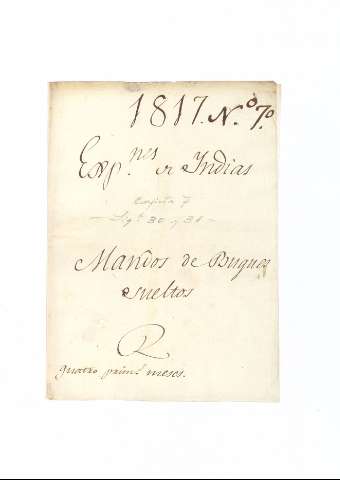 1817. N.º 7.º
Exp.nes de Indias
Carpeta 7
Sig.s 30 y 31
Mandos de Buques
sueltos
R
quatro prim.s meses.